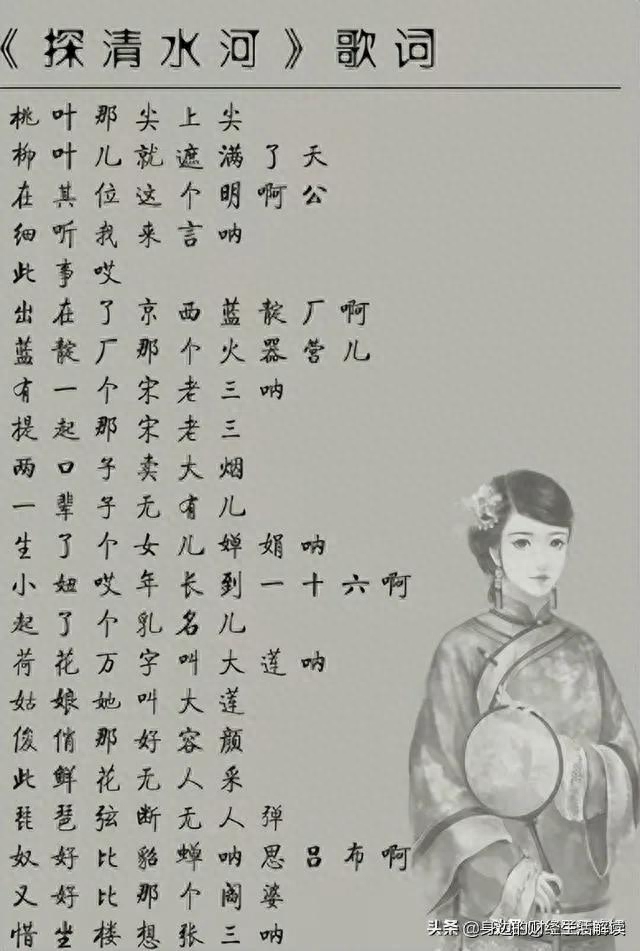 《探清水河》歌词
桃叶那尖上尖
柳叶儿就遮满了天
在其位这个明啊公
细听我来言呐
此事哎
出在了京西蓝靛厂啊
蓝靛厂那个火器营儿
有一个宋老三呐
提起那宋老三
两口子卖大烟
一辈子无有儿
生了个女儿婵娟呐
小妞哎年长到一十六啊
起了个乳名儿
荷花万字叫大莲呐
姑娘她叫大莲
俊俏那好容颜
此鲜花无人采
琵琶弦断无人弹
奴好比貂蝉呐思吕布啊
又好比那个阎婆
惜坐楼想张三呐
头条 @身边的财经生活解读